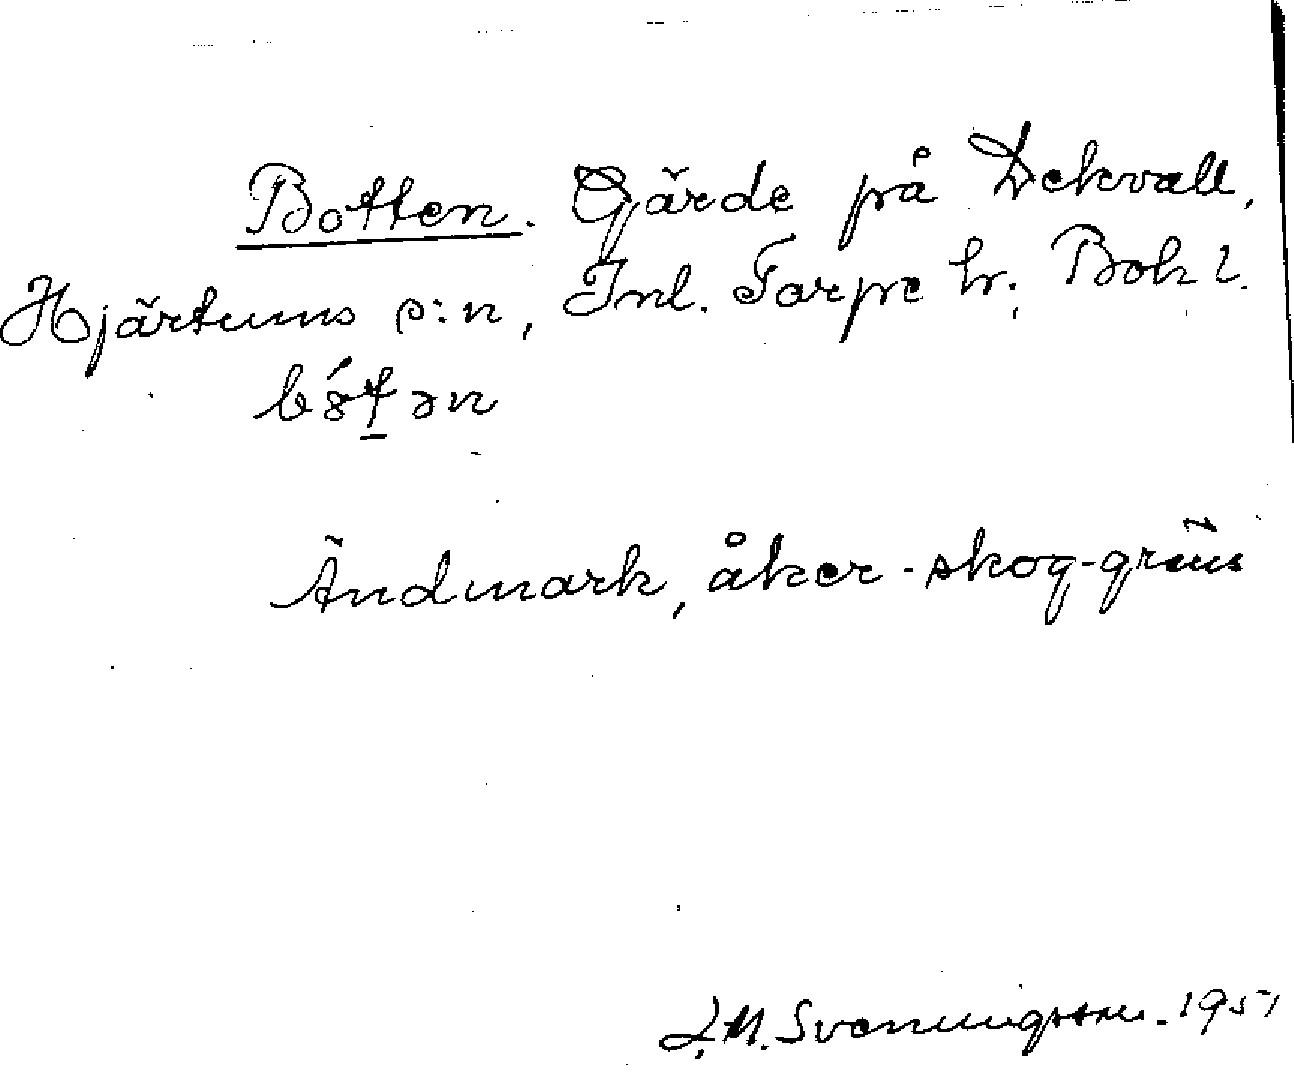 Botten. Gärde på Dekvall,
Hjärtums s:n, Inl. Torpe hr; Boh l.
Ändmark, åker-skog-gräns
J. M. Svenningsson. 1951